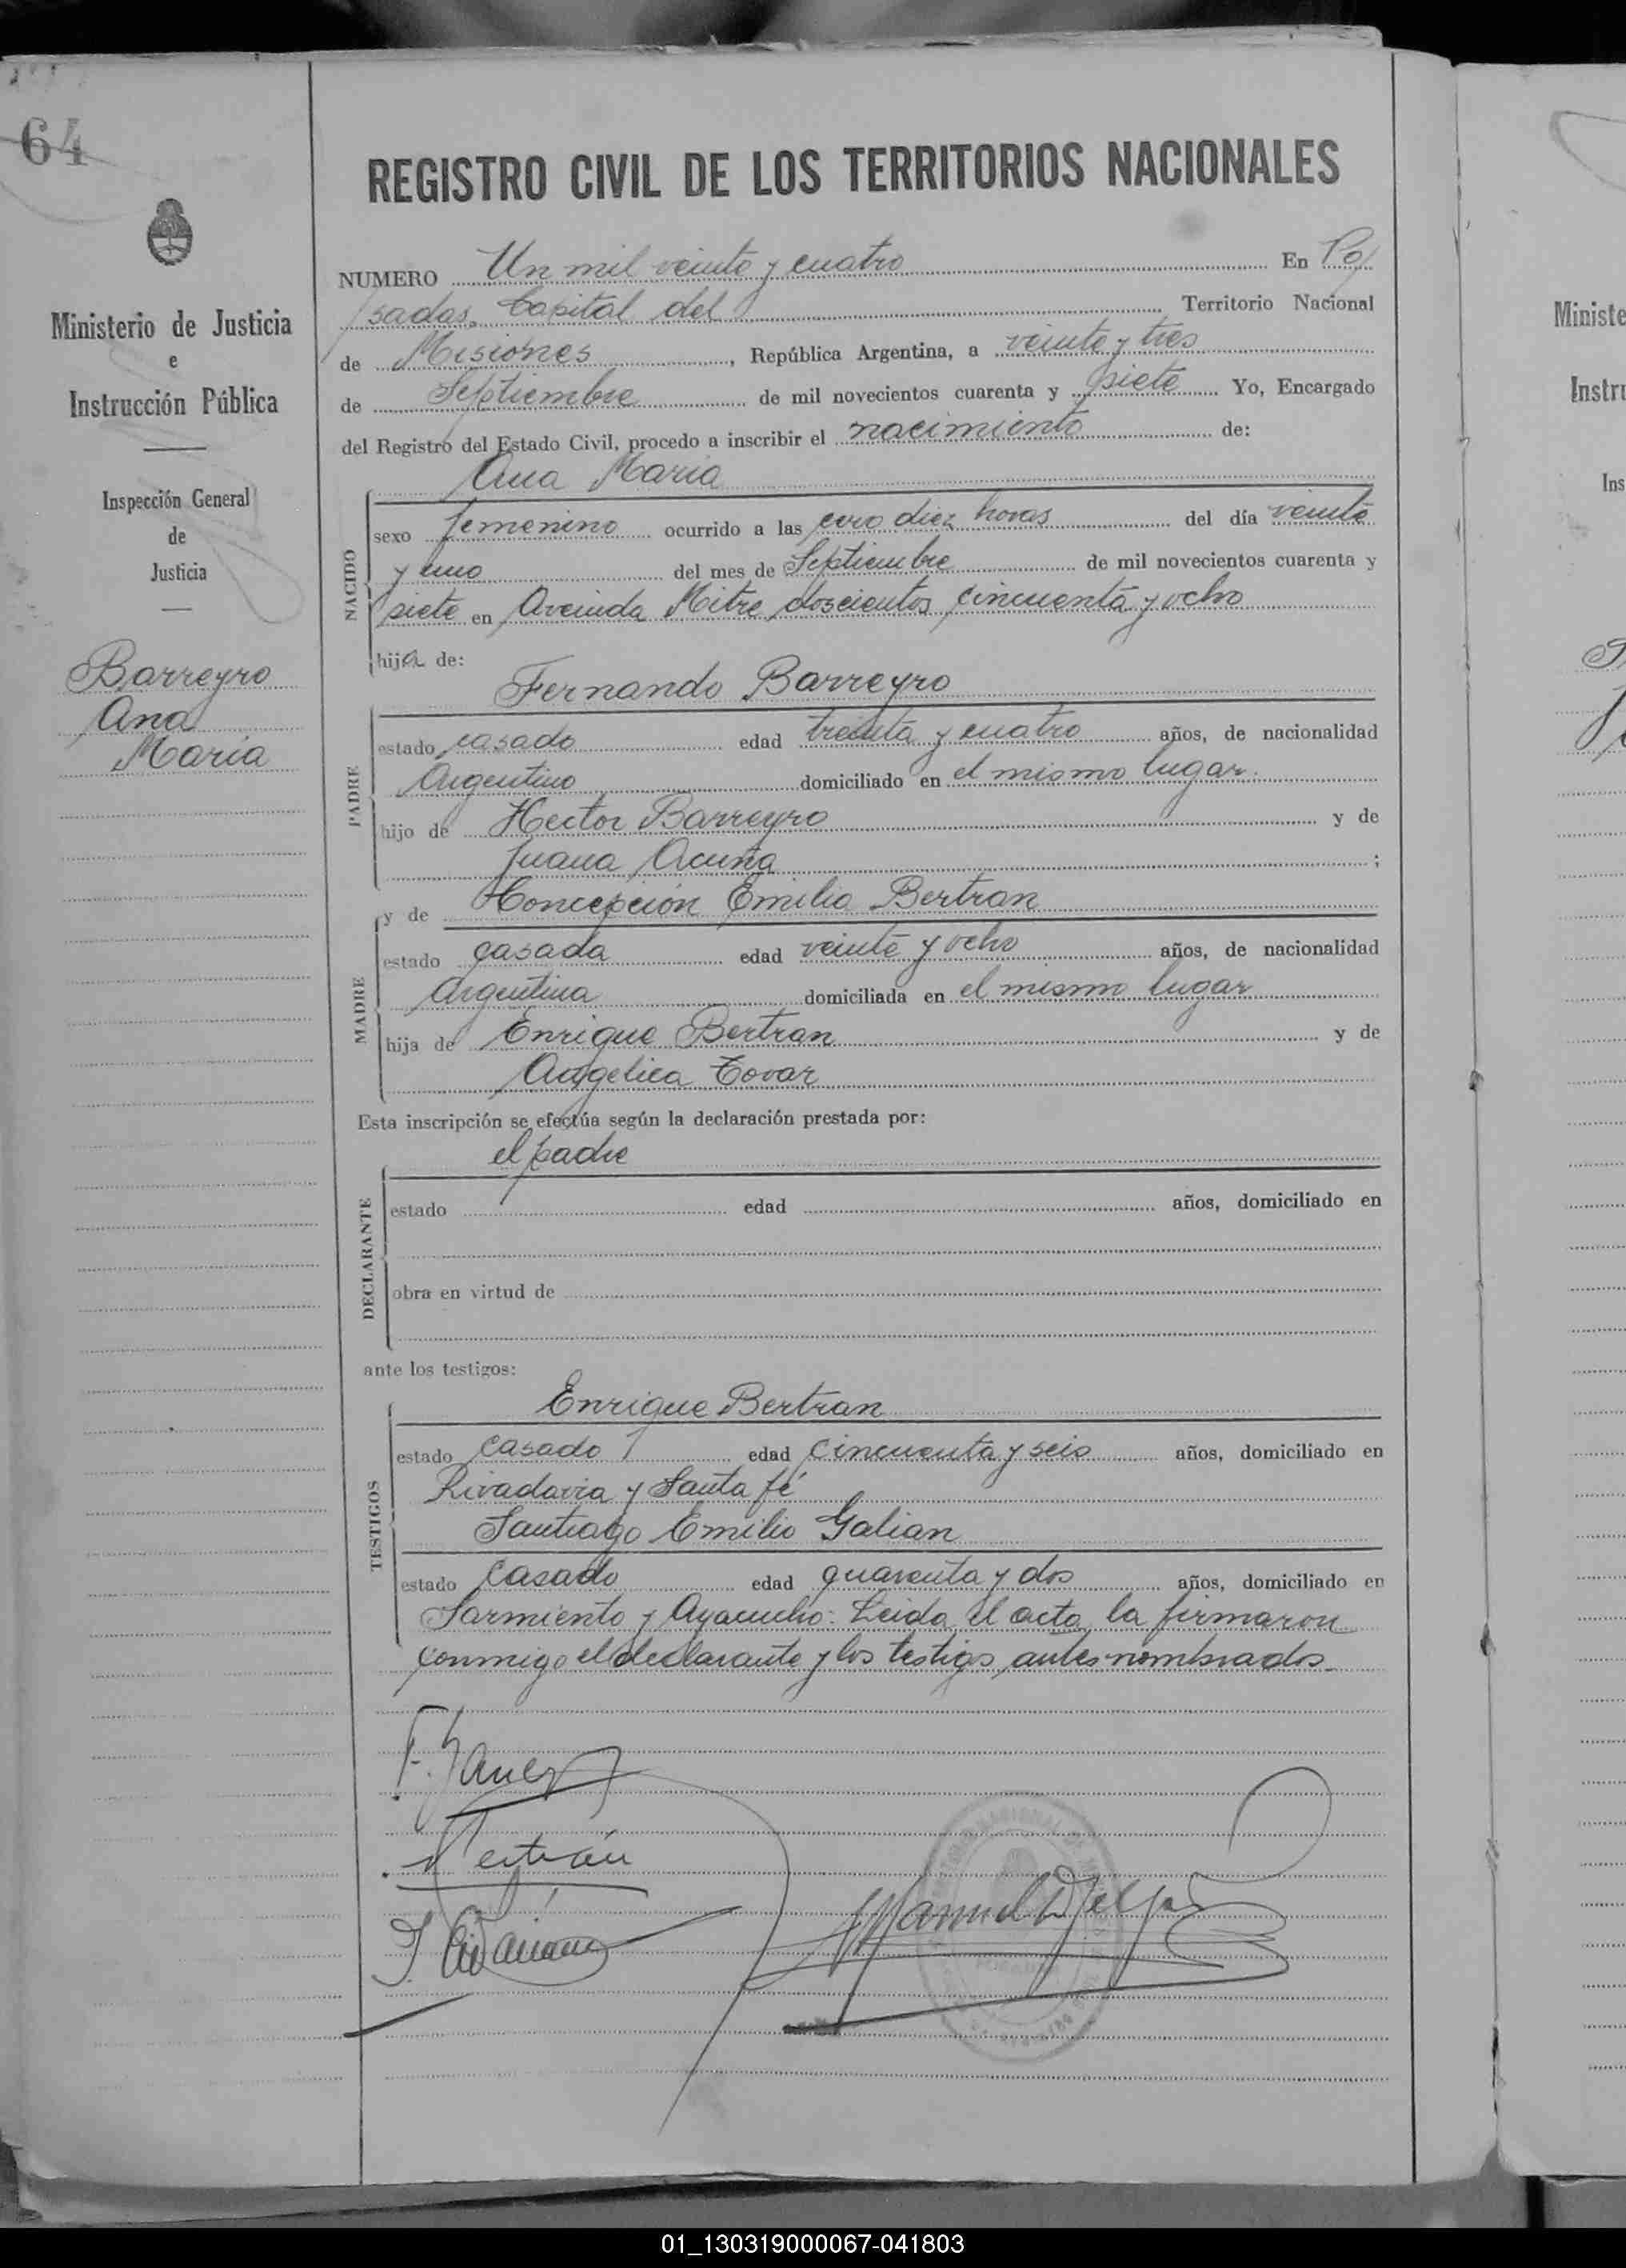 64
Ministerio de Justicia
e
Instrucción Pública
Inspección General
de
Justicia
Barreyro
Ana
María
REGISTRO CIVIL DE LOS TERRITORIOS NACIONALES
NUMERO Un mil veinte y cuatro En Po/
/sadas, Capital del Territorio Nacional
de Misiones, República Argentina, a veinte y tres
de Septiembre de mil novecientos cuarenta y siete Yo, Encargado
del Registro del Estado Civil, procedo a inscribir el nacimiento de:
Ana Maria
NACIDO
sexo femenino ocurrido a las cero diez horas del día veinte
y uno del mes de Septiembre de mil novecientos cuarenta y
siete en Avenida Mitre doscientos cincuenta y ocho
hija de:
Fernando Barreyro
PADRE
estado casado edad treinta y cuatro años, de nacionalidad
Argentino domiciliado en el mismo lugar.
hijo de Hector Barreyro y de
Juana Acuña ;
y de Concepción Emilia Bertran
MADRE
estado casada edad veinte y ocho años, de nacionalidad
Argentina domiciliada en el mismo lugar
hija de Enrique Bertran y de
Angelica Tovar
Esta inscripción se efectúa según la declaración prestada por:
el padre
DECLARANTE
estado edad años, domiciliado en
obra en virtud de
ante los testigos:
Enrique Bertran
TESTIGOS
estado casado edad cincuenta y seis años, domiciliado en
Rivadavia y Santa fé
Santiago Emilio Galian
estado casado edad quarenta y dos años, domiciliado en
Sarmiento y Ayacucho: Leida el acta, la firmaron
conmigo el declarante y los testigos antes nombrados.
Ministe
Instru
Ins
01_130319000067-041803